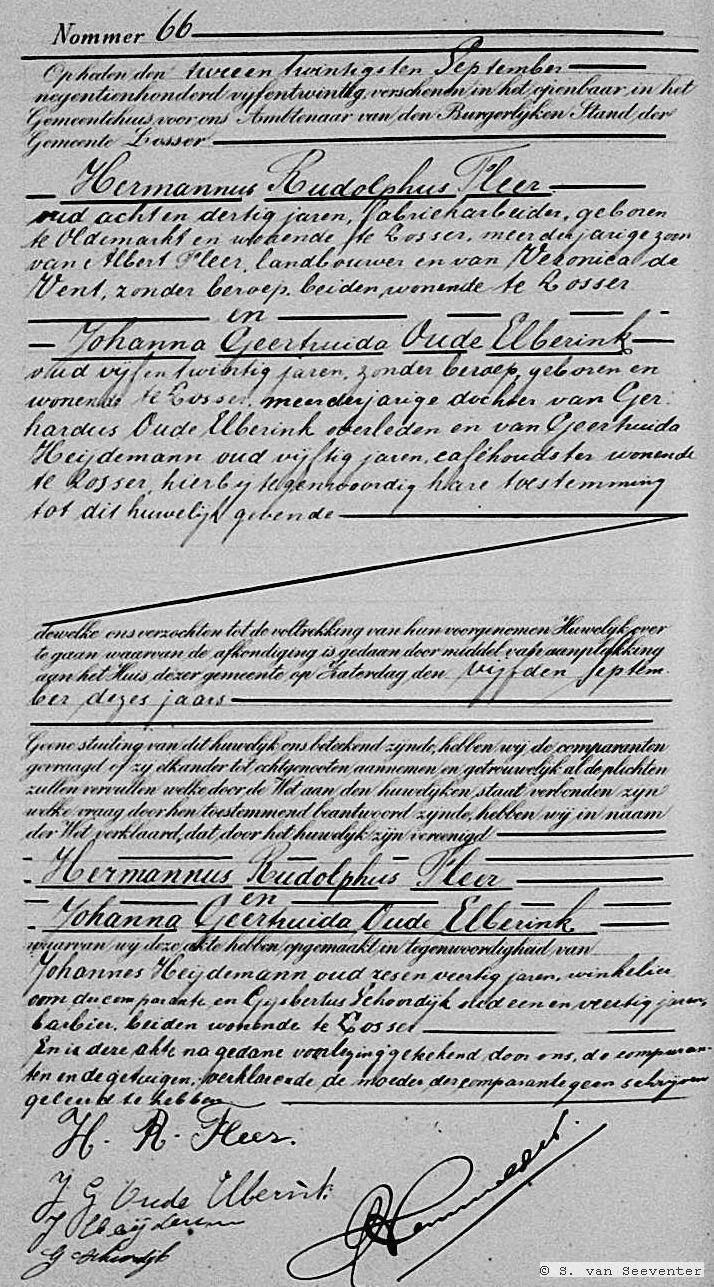 Nommer 66
Op heden den tweeen twintigsten September
negentienhonderd vyfentwintig, verschenen in het openbaar, in het
Gemeentehuis voor ons Ambtenaar van den Burgerlyken Stand der
Gemeente Losser
Hermannus Rudolphus Fleer
oud achten dertig jaren, fabriekarbeider, geboren
te Oldemarkt en wonende te Losser, meerderjarige zoon
van Albert Fleer, landbouwer en van Veronica de
Vent, zonder beroep, beiden wonende te Losser
en
Johanna Geertruida Oude Elberink
oud vijfentwintig jaren, zonder beroep, geboren en
wonende te Losser, meerderjarige dochter van Ger-
hardus Oude Elberink overleden en van Geertruida
Heijdemann oud vijftig jaren, caféhoudster wonende
te Losser, hierbij tegenwoordig hare toestemming
tot dit huwelijk gevende
dewelke ons verzochten tot de voltrekking van hun voorgenomen Huwelyk over
te gaan waarvan de afkondiging is gedaan door middel van aanplakking
aan het Huis dezer gemeente op Zaterdag den vijfden Septem-
ber dezes jaars
Geene stuiting van dit huwelyk ons beteekend zynde, hebben wy de comparanten
gevraagd of zy elkander tot echtgenooten aannemen en getrouwelyk al de plichten
zullen vervullen welke door de Wet aan den huwelyken staat verbonden zyn
welke vraag door hen toestemmend beantwoord zynde, hebben wy in naam
der Wet verklaard, dat door het huwelyk zyn vereenigd
Hermannus Rudolphus Fleer
en
Johanna Geertruida Oude Elberink
waarvan wy deze akte hebben opgemaakt in tegenwoordigheid van
Johannes Heijdemann oud zesenveertig jaren, winkelier
oom der comparante en Gijsbertus Schoordijk oud eenenveertig jaren,
barbier, beiden wonende te Losser
En is deze akte na gedane voorlezing geteekend door ons, de comparan-
ten en de getuigen, verklarende de moeder der comparante geen schrijven
geleerd te hebben
H. R. Fleer.
J G Oude Elberink
J Heijdemann
G Schoordijk
© S. van Seeventer